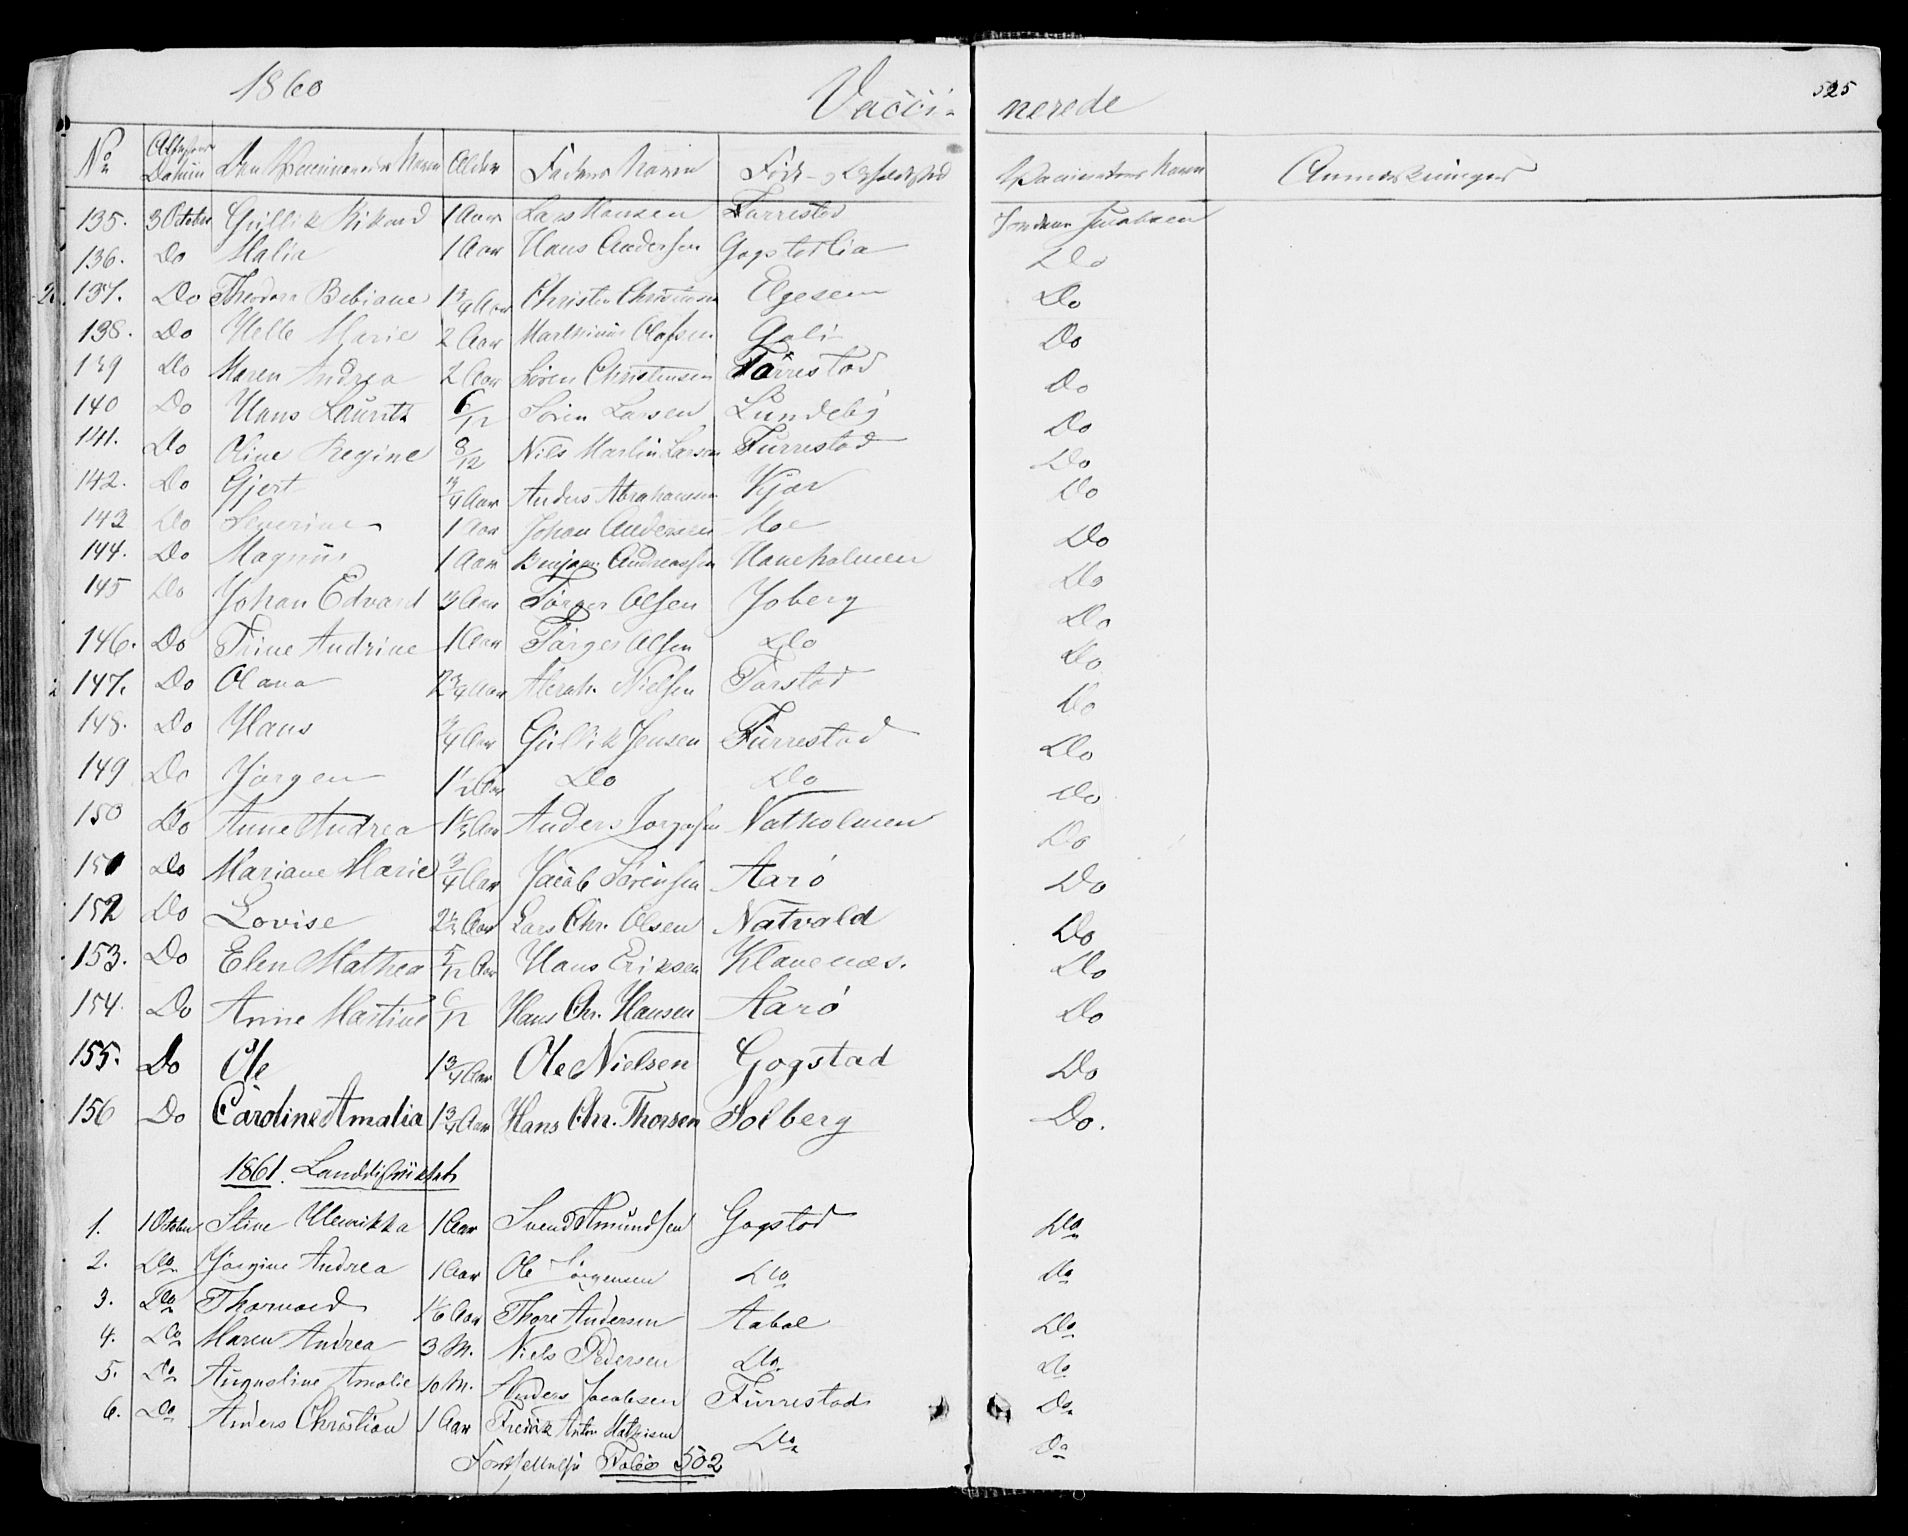 1860
Vacci-nerede
525
No Datum Den Vaccineredes Navn Alder Faders Navn Føde- og Opholdsted Vaccinators Navn Anmærkninger
135. 3 October Gullik Rikard 1 Aar Lars Hansen Furrestad Jacobsen
136. Do Malin 1 Aar Hans Andersen Gogstad Lia Do
137. Do Theodora Bebiane 1 3/4 Aar Christen Christensen Elgesem Do
138. Do Helle Marie 2 Aar Marthinus Olafsen Gali Do
139 Do Maren Andrea 2 Aar Søren Christensen Furrestad Do
140 Do Hans Lauritz 6/12 Søren Larsen Lundeby Do
141. Do Oline Regine 8/12 Nils Martin Larsen Furrestad Do
142. Do Gjert 3/4 Aar Anders Abrahamsen Kjær Do
143 Do Severine 1 Aar Johan Andersen Moe Do
144. Do Magnus 1 Aar Benjam. Andreassen Haneholmen Do
145 Do Johan Edvard 3 Aar Törger Olsen Joberg Do
146. Do Trine Andrine 1 Aar Törges Olsen Do Do
147. Do Olava 2 3/4 Aar Abrah. Nielsen Tarstad Do
148. Do Hans 3/4 Aar Gullik Jensen Furrestad Do
149 Do Jörgen 1 1/2 Aar Do Do Do
150 Do Anne Andrea 1 1/2 Aar Anders Jorgensen Natholmen Do
151 Do Mariane Marie 3/4 Aar Jacob Sørensen Aarö Do
152 Do Lovise 2 1/2 Aar Lars Chr. Olsen Natvald Do
153. Do Elen Mathea 5/12 Aar Hans Eriksen Klavenæs. Do
154. Do Anne Martine 6/12 Hans Chr. Hansen Aarö Do
155. Do Ole 1 3/4 Aar Ole Nielsen Gogstad Do
156 Do Caroline Amalia 1 3/4 Aar Hans Chr. Thorsen Solberg Do.
1861. Landdistriktet
1. 1 October Stine Henrikka 1 Aar Svend Amundsen Gogstad Do
2. Do Jørgine Andrea 1 Aar Ole Jørgensen Do Do
3. Do Thorvald 1 1/6 Aar Thore Andersen Aabol Do
4. Do Maren Andrea 3 M. Niels Pedersen Do Do
5. Do Augustine Amalie 10 M. Anders Jacobsen Furrestad Do
6. Do Anders Christian 1 Aar Fredrik Anton Mathisen Do Do
Fortsættelse Folio 502